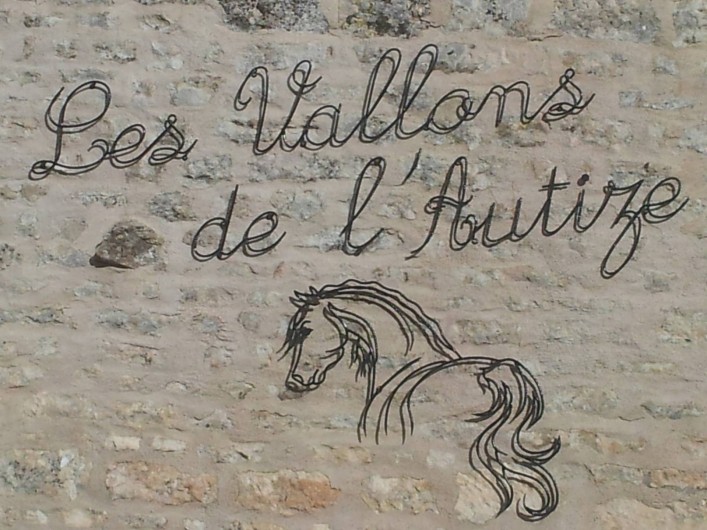 Les Vallons
de l'Autize